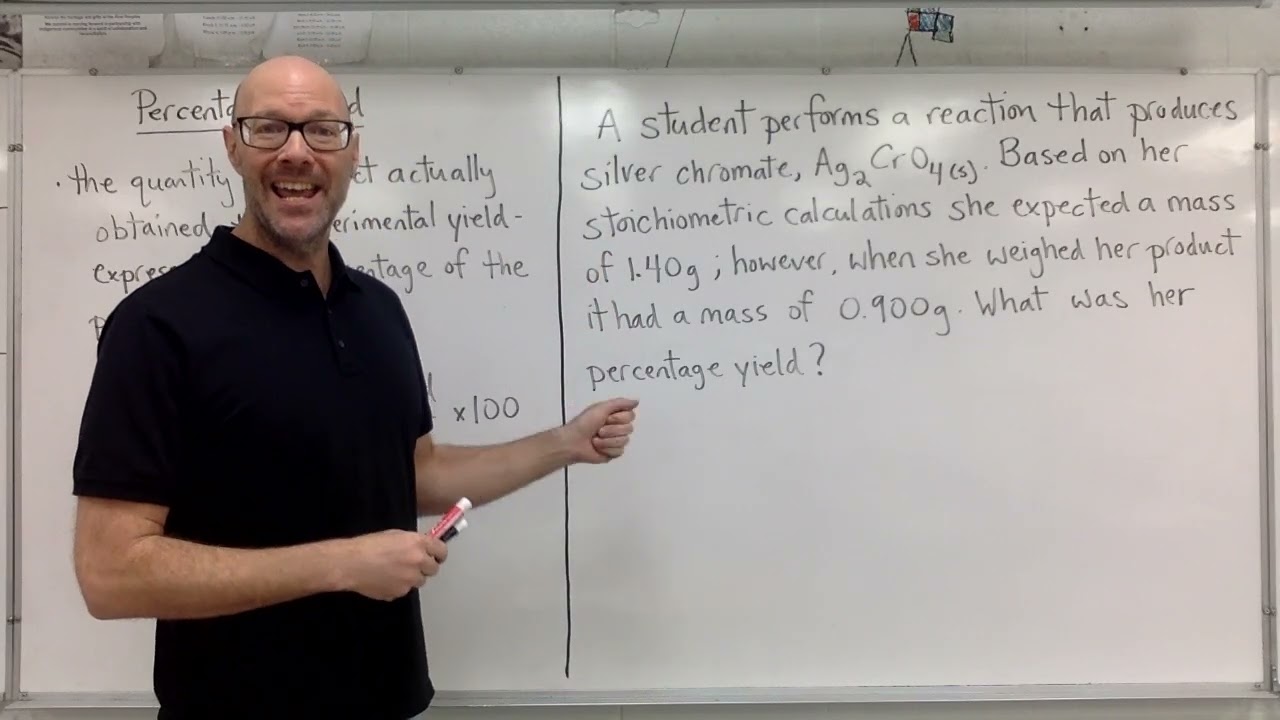 Percenta d
· the quantity ct actually
obtained erimental yield -
expres entage of the
x100
A student performs a reaction that produces
silver chromate, Ag2CrO4(s). Based on her
stoichiometric calculations she expected a mass
of 1.40g; however, when she weighed her product
it had a mass of 0.900g. What was her
percentage yield?